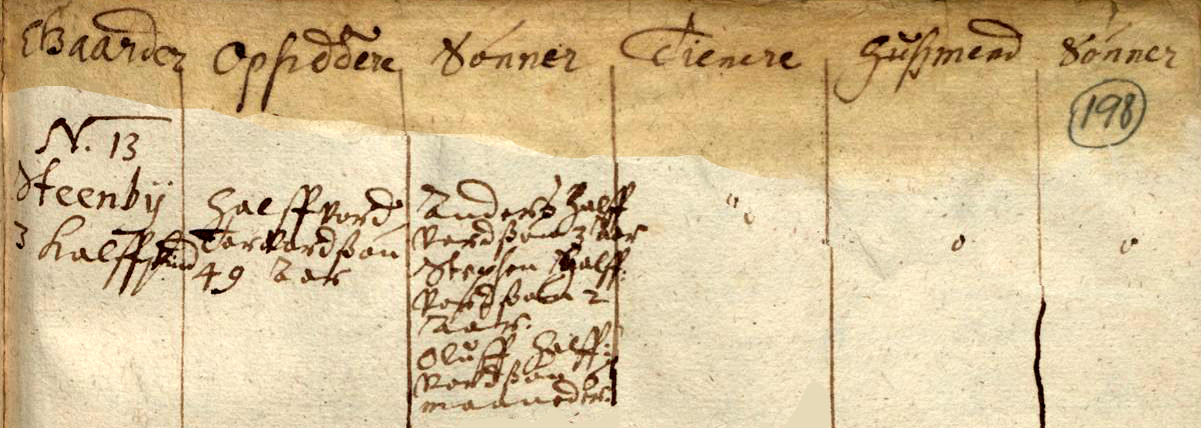 Gaarder Opsiddere Sønner Tienere Hußmend Sønner
198
N. 13
Steenbÿ
3 halffskind
Halffvord
Torvordßøn
49 Aar
Anders Halff
vordßøn 3 Aar
Stephen Halff
vordßøn 2
Aar.
Oluff Halff:
vordßøn
maaneder.
" o o o